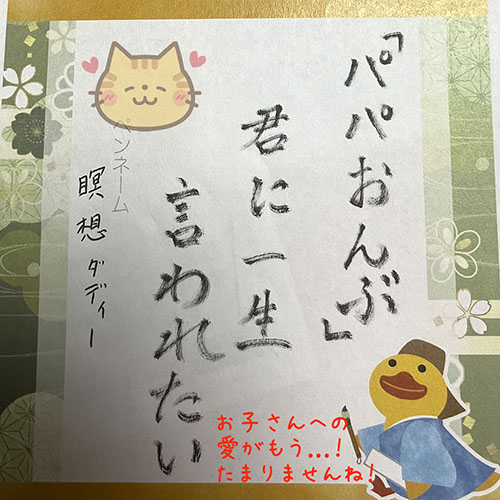 「パパおんぶ」
君に一生
言われたい
ペンネーム
瞑想ダディー
お子さんへの
愛がもう...!
たまりませんね!